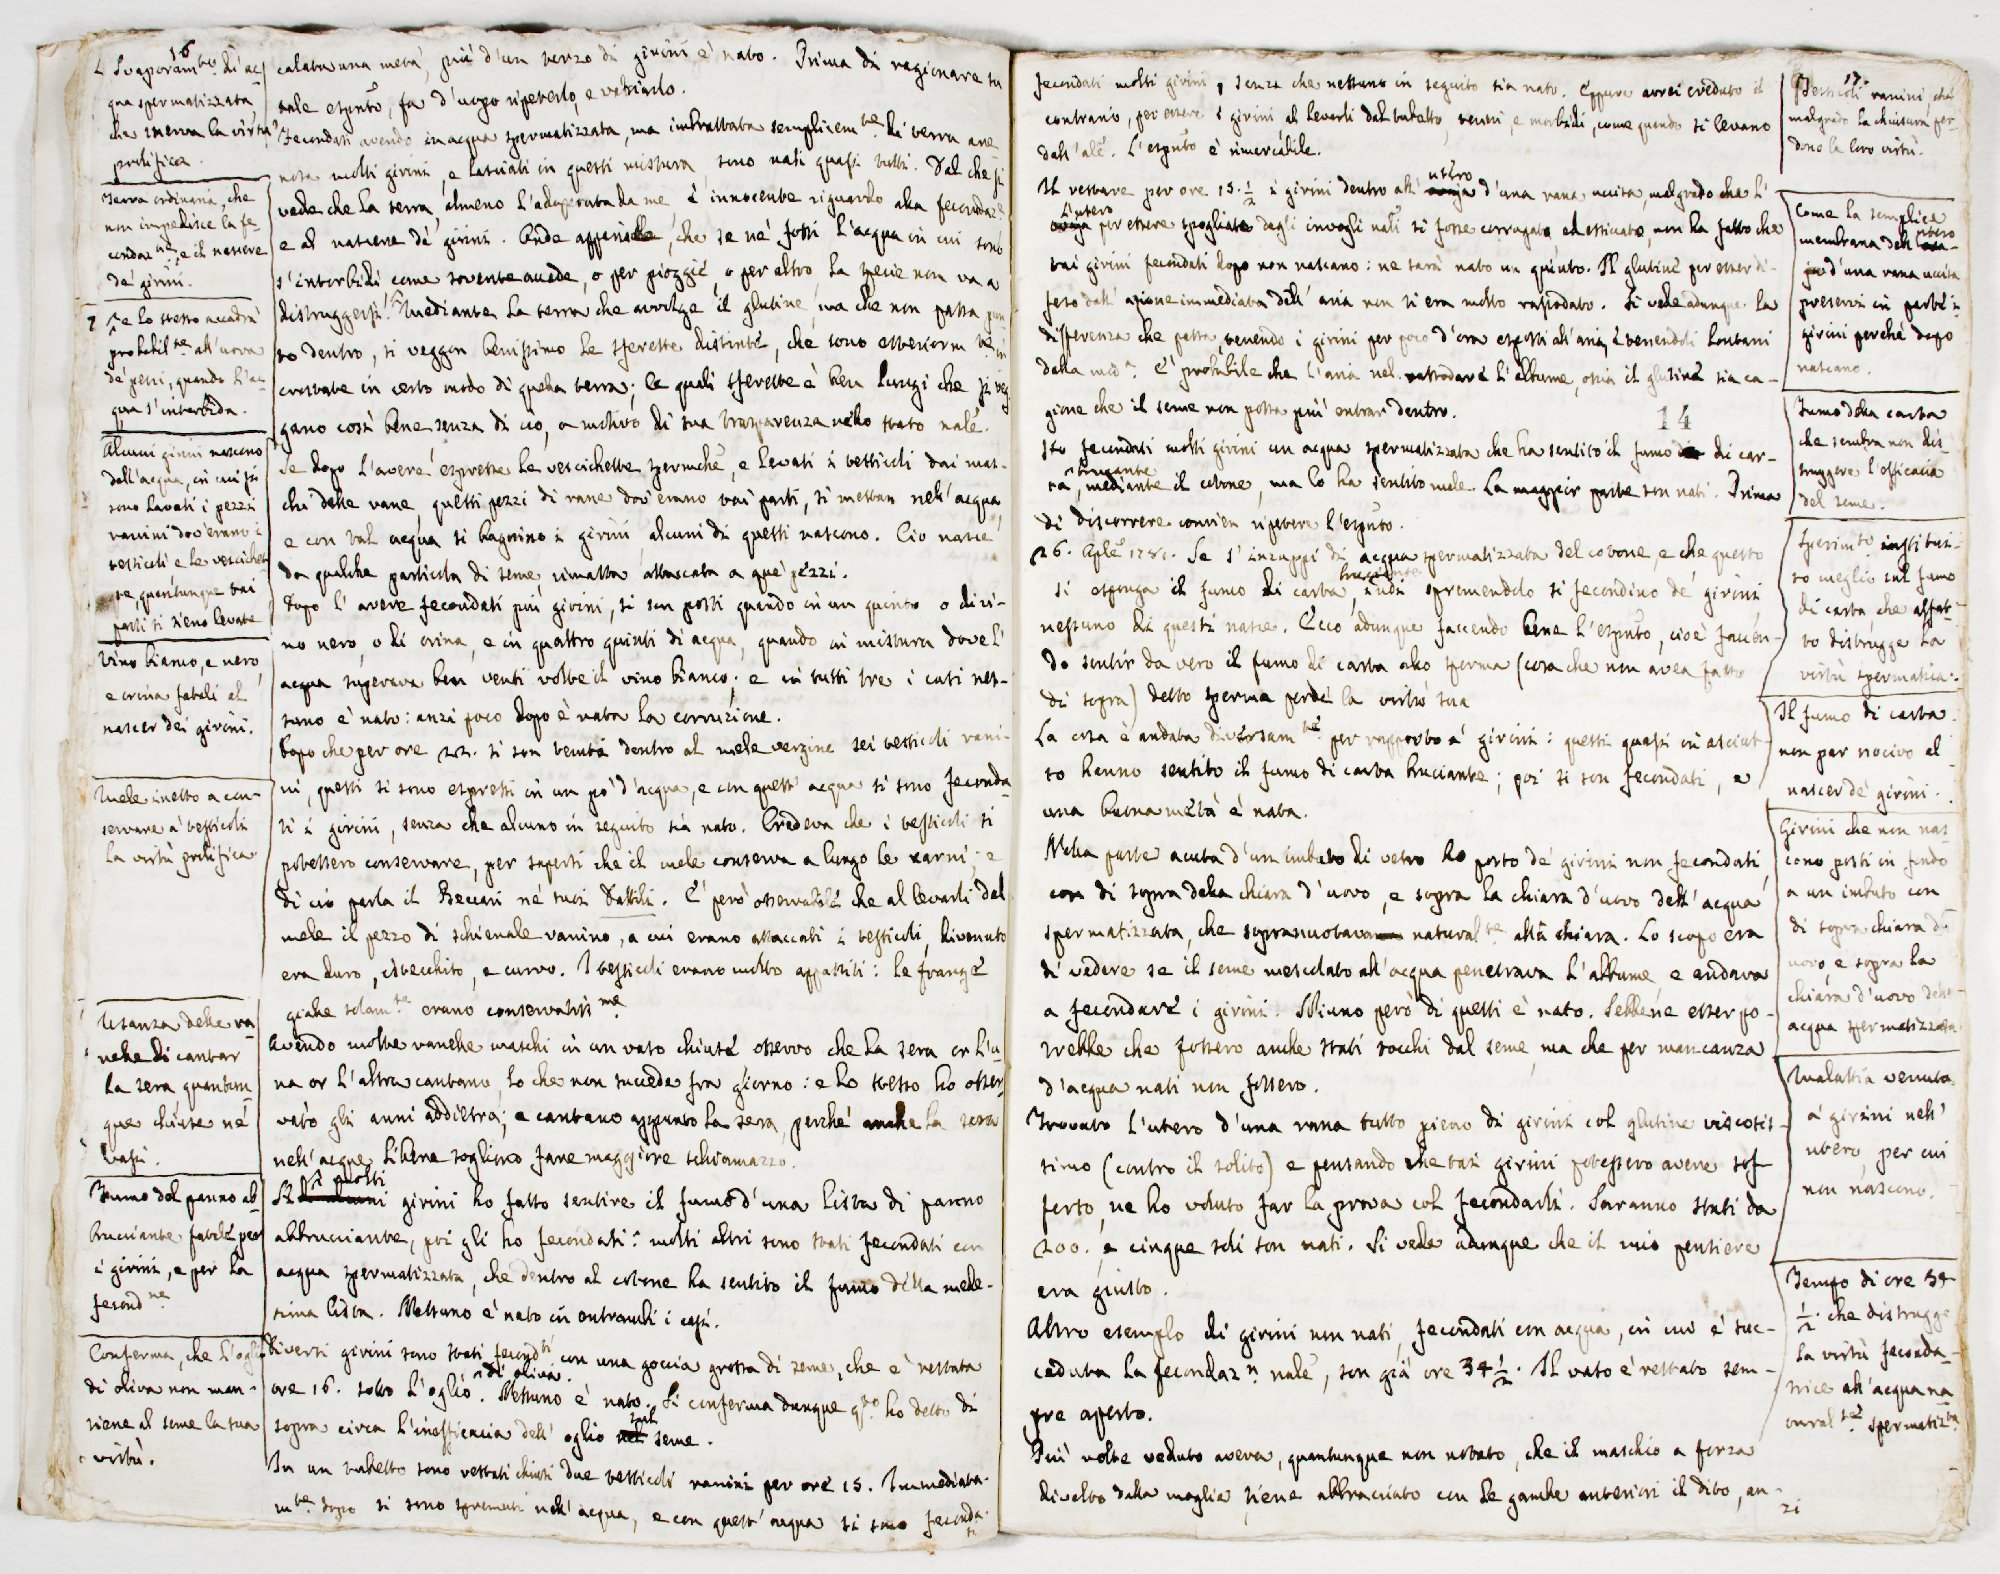 16
L'Svaporam.to di ac-
qua spermatizzata
che snerva la virtù
prolifica.
Terra ordinaria, che
non impedisce la fe-
condaz.ne, e il nascere
de' girini.
Se lo stesso accadrà
probabil.te all'uova
de' pesci, quando l'ac-
qua s'interbida.
Alcuni girini nascono
dall'acqua, in cui si
sono lavati i pezzi
ranini dov'erano i
testicoli e le vescichet-
te, quantunque tai
parti si sieno levate
Vino bianco, e nero,
e orina fatali al
nascer dei girini.
Mele inetto a con-
servare a' testicoli
la virtù prolifica
Usanza delle ra-
nelle di cantar
la sera quantun-
que chiuse ne'
vasi.
Fumo del panno ab-
bruciante fatale per
i girini, e per la
fecond.ne
Conferma, che l'oglio
di oliva non man-
tiene al seme la sua
virtù.
calata una metà, più d'un terzo di girini è nato. Prima di ragionare su
tale esp.to, fa d'uopo ripeterlo, e variarlo.
Fecondati avendo in acqua spermatizzata, ma imbrattata semplicem.te di terra are-
nosa molti girini, e lasciati in questa mistura, sono nati quasi tutti. Dal che si
vede che la terra, almeno l'adoperata da me è innocente riguardo alla fecondaz.ne
e al nascere de' girini. Onde apparisce, che se ne' fossi l'acqua in cui sono
s'interbidi come sovente accade, o per pioggie, o per altro, la specie non va a
distruggersi. Mediante la terra che avvolge il glutine, ma che non passa pun-
to dentro, si veggon benissimo le sferette distinte, che sono esteriorm.te in
crostate in certo modo di quella terra; le quali sferette è ben lungi che si veg-
gano così bene senza di ciò, a motivo di sua trasparenza nello stato nale.
Se dopo l'avere espresse le vescichette spermche, e levati i testicoli dai mas-
chi delle rane, questi pezzi di rane dov'erano tai parti, si mettan nell'acqua,
e con tal acqua si bagnino i girini, alcuni di questi nascono. Ciò nasce
da qualche particola di seme rimasta attaccata a que' pezzi.
Dopo l'avere fecondati più girini, si son posti quando in un quinto o di vi-
no nero, o di orina, e in quattro quinti di acqua, quando in mistura dove l'
acqua superava ben venti volte il vino bianco; e in tutti tre i casi nes-
suno è nato: anzi poco dopo è nata la corruzione.
Dopo che per ore 22. si son tenuti dentro al mele vergine sei testicoli rani-
ni, questi si sono espressi in un po' d'acqua, e con quest'acqua si sono feconda-
ti i girini, senza che alcuno in seguito sia nato. Credeva che i testicoli si
potessero conservare, per sapersi che il mele conserva a lungo le carni; e
di ciò parla il Beccari ne' suoi Dattili. È però osservabile che al levarli dal
mele il pezzo di schienale ranino, a cui erano attaccati i testicoli, divenuto
era duro, istecchito, e curvo. I testicoli erano molto appassiti: le frange
gialle solam.te erano conservatiss.me
Avendo molte ranelle maschi in un vaso chiuse osservo che la sera or l'u-
na or l'altra cantano, lo che non succede fra giorno: e lo stesso ho osser-
vato gli anni addietro; e cantano appunto la sera, perché anche la sera
nell'acque libere sogliono fare maggiore schiamazzo.
A molti girini ho fatto sentire il fumo d'una lista di panno
abbruciante, poi gli ho fecondati: molti altri sono stati fecondati con
acqua spermatizzata, che dentro al cotone ha sentito il fumo della mede-
sima lista. Nessuno è nato in entrambi i casi.
Diversi girini sono stati fecond.ti con una goccia grossa di seme, che è restata
ore 16. sotto l'oglio di oliva. Nessuno è nato. Si conferma dunque q.to ho detto di
sopra circa l'inefficacia dell'oglio sul seme.
In un tubetto sono restati chiusi due testicoli ranini per ore 15. Immediata-
m.te dopo si sono spremuti nell'acqua, e con quest'acqua si sono feconda-
ti
fecondati molti girini, senza che nessuno in seguito sia nato. Eppure avrei creduto il
contrario, per essere i girini al levarli dal tubetto, teneri, e morbidi, come quando si levano
dall'ale. L'esp.to è rimarcabile.
Il restare per ore 15. 1/2 i girini dentro all' utero d'una rana uccisa, malgrado che l'
l'utero per essere spogliato degli invogli nali si fosse corrugato, ed essiccato, non ha fatto che
tai girini fecondati dopo non nascano: ne sarà nato un quinto. Il glutine per esser di-
feso dall'azione immediata dell'aria non si era molto rassodato. Si vede adunque la
differenza che passa tenendo i girini per poco d'ora esposti all'aria, e tenendoli lontani
dalla med.a È probabile che l'aria nel rassodare l'albume, ossia il glutine sia ca-
gione che il seme non possa più entrar dentro.
14
Ho fecondati molti girini in acqua spermatizzata che ha sentito il fumo di car-
ta bruciante, mediante il cotone, ma lo ha sentito male. La maggior parte son nati. Prima
di discorrere convien ripetere l'esp.to.
26. Aple 1781. Se s'inzuppi di acqua spermatizzata del cotone, e che questo
si esponga il fumo di carta bruciante, indi spremendolo si fecondino de' girini
nessuno di questi nasce. Ecco adunque facendo bene l'esp.to, cioè facen-
do sentir da vero il fumo di carta allo sperma (cosa che non avea fatto
di sopra) detto sperma perde la virtù sua
La cosa è andata diversam.te per rapporto a' girini: questi quasi in asciut-
to hanno sentito il fumo di carta bruciante; poi si son fecondati, e
una buona metà è nata.
Nella parte acuta d'un imbuto di vetro ho posto de' girini non fecondati,
con di sopra della chiara d'uovo, e sopra la chiara d'uovo dell'acqua
spermatizzata, che soprannuotava natural.te alla chiara. Lo scopo era
di vedere se il seme mescolato all'acqua penetrava l'albume e andava
a fecondare i girini. Niuno però di questi è nato. Sebbene esser po-
trebbe che fossero anche stati tocchi dal seme, ma che per mancanza
d'acqua nati non fossero.
Trovato l'utero d'una rana tutto pieno di girini col glutine viscosis-
simo (contro il solito) e pensando che tai girini potessero avere sof-
ferto, ne ho voluto far la prova col fecondarli. Saranno stati da
200. e cinque soli son nati. Si vede adunque che il mio pensiere
era giusto.
Altro esempio di girini non nati, fecondati con acqua, in cui è suc-
ceduta la fecondaz.n nale, son già ore 34 1/2. Il vaso è restato sem-
pre aperto.
Più volte veduto aveva, quantunque non notato, che il maschio a forza
divelto dalla moglie, tiene abbracciato con le gambe anteriori il dito, an-
zi
17.
Testicoli ranini, che
malgrado la chiusura per-
dono la loro virtù.
Come la semplice
membrana dell'utero
d'una rana uccisa
preservi in parte i
girini perché dopo
nascano.
Fumo della carta
che sembra non dis-
truggere l'efficacia
del seme.
Sperim.to institui-
to meglio sul fumo
di carta che affat-
to distrugge la
virtù spermatica.
Il fumo di carta
non par nocivo al
nascer de' girini.
Girini che non nas-
cono posti in fondo
a un imbuto con
di sopra chiara d'
uovo, e sopra la
chiara d'uovo dell'
acqua spermatizzata
Malattia venuta
a' girini nell'
utero, per cui
non nascono.
Tempo di ore 34
1/2. che distrugge
la virtù feconda-
trice all'acqua na-
tural.te spermatiz.ta